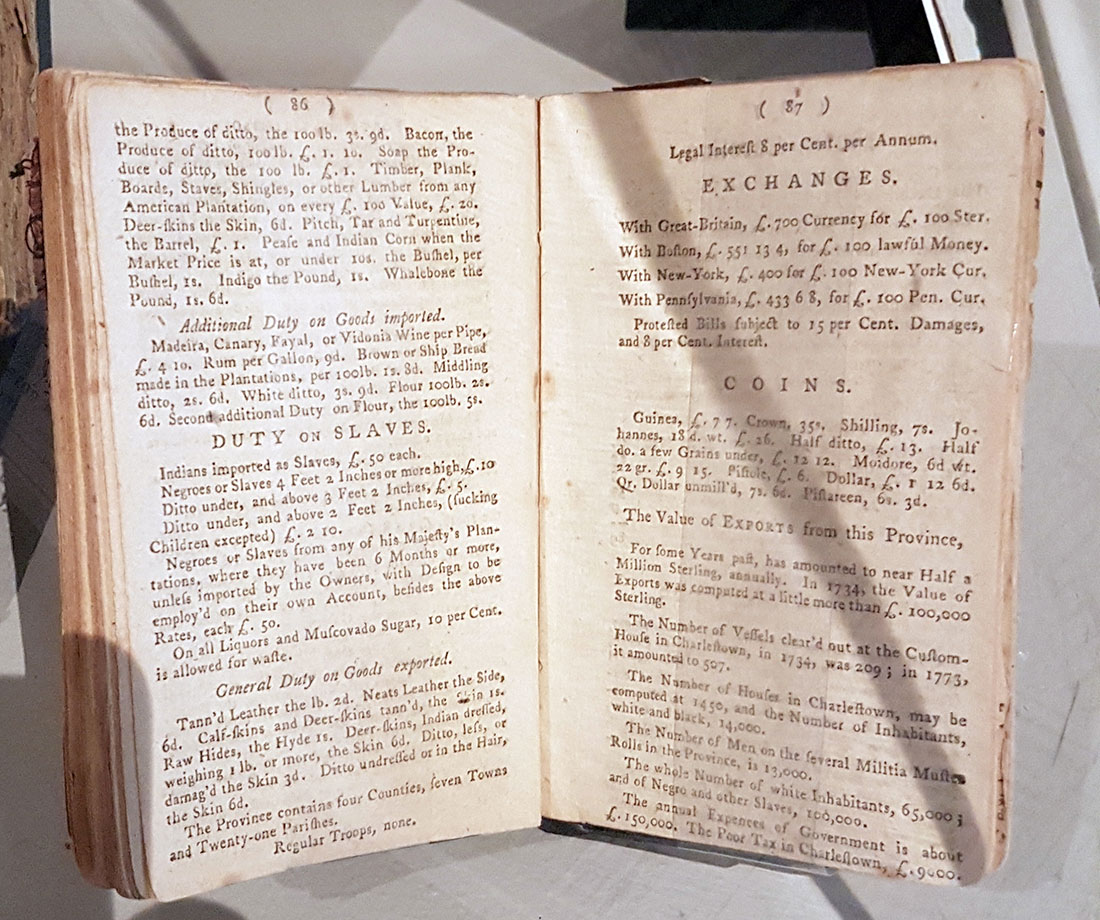 ( 86 )
the Produce of ditto, the 100 lb. 3s. 9d. Bacon, the
Produce of ditto, 100 lb. £. 1. 10. Soap the Pro-
duce of ditto, the 100 lb. £. 1. Timber, Plank,
Boards, Staves, Shingles, or other Lumber from any
American Plantation, on every £. 100 Value, £. 20.
Deer-ſkins the Skin, 6d. Pitch, Tar and Turpentine,
the Barrel, £. 1. Peaſe and Indian Corn when the
Market Price is at, or under 10s. the Buſhel, per
Buſhel, 1s. Indigo the Pound, 1s. Whalebone the
Pound, 1s. 6d.
Additional Duty on Goods imported.
Madeira, Canary, Fayal, or Vidonia Wine per Pipe,
£. 4 10. Rum per Gallon, 9d. Brown or Ship Bread
made in the Plantations, per 100lb. 1s. 8d. Middling
ditto, 2s. 6d. White ditto, 3s. 9d. Flour 100lb. 2s.
6d. Second additional Duty on Flour, the 100lb. 5s.
DUTY ON SLAVES.
Indians imported as Slaves, £. 50 each.
Negroes or Slaves 4 Feet 2 Inches or more high, £. 10
Ditto under, and above 3 Feet 2 Inches, £. 5.
Ditto under, and above 2 Feet 2 Inches, (ſucking
Children excepted) £. 2 10.
Negroes or Slaves from any of his Majeſty's Plan-
tations, where they have been 6 Months or more,
unleſs imported by the Owners, with Deſign to be
employ'd on their own Account, beſides the above
Rates, each £. 50.
On all Liquors and Muſcovado Sugar, 10 per Cent.
is allowed for waſte.
General Duty on Goods exported.
Tann'd Leather the lb. 2d. Neats Leather the Side,
6d. Calf-ſkins and Deer-ſkins tann'd, the Skin 1s.
Raw Hides, the Hyde 1s. Deer-ſkins, Indian dreſſed,
weighing 1 lb. or more, the Skin 6d. Ditto, leſs, or
damag'd the Skin 3d. Ditto undreſſed or in the Hair,
the Skin 6d.
The Province contains four Counties, ſeven Towns
and Twenty-one Pariſhes.
Regular Troops, none.
( 87 )
Legal Intereſt 8 per Cent. per Annum.
EXCHANGES.
With Great-Britain, £. 700 Currency for £. 100 Ster.
With Boſton, £. 551 13 4, for £. 100 lawful Money.
With New-York, £. 400 for £. 100 New-York Cur.
With Pennſylvania, £. 433 6 8, for £. 100 Pen. Cur.
Proteſted Bills ſubject to 15 per Cent. Damages,
and 8 per Cent. Intereſt.
COINS.
Guinea, £. 7 7. Crown, 35s. Shilling, 7s. Jo-
hannes, 18 d. wt. £. 26. Half ditto, £. 13. Half
do. a few Grains under, £. 12 12. Moidore, 6d wt.
22 gr. £. 9 15. Piſtole, £. 6. Dollar, £. 1 12 6d.
Qr. Dollar unmill'd, 7s. 6d. Piſtareen, 6s. 3d.
The Value of EXPORTS from this Province,
For ſome Years paſt, has amounted to near Half a
Million Sterling, annually. In 1734, the Value of
Exports was computed at a little more than £. 100,000
Sterling.
The Number of Veſſels clear'd out at the Cuſtom-
Houſe in Charleſtown, in 1734, was 209; in 1773,
it amounted to 507.
The Number of Houſes in Charleſtown, may be
computed at 1450, and the Number of Inhabitants,
white and black, 14,000.
The Number of Men on the ſeveral Militia Muſter
Rolls in the Province, is 13,000.
The whole Number of white Inhabitants, 65,000;
and of Negro and other Slaves, 100,000.
The annual Expences of Government is about
£. 150,000. The Poor Tax in Charleſtown, £. 9000.